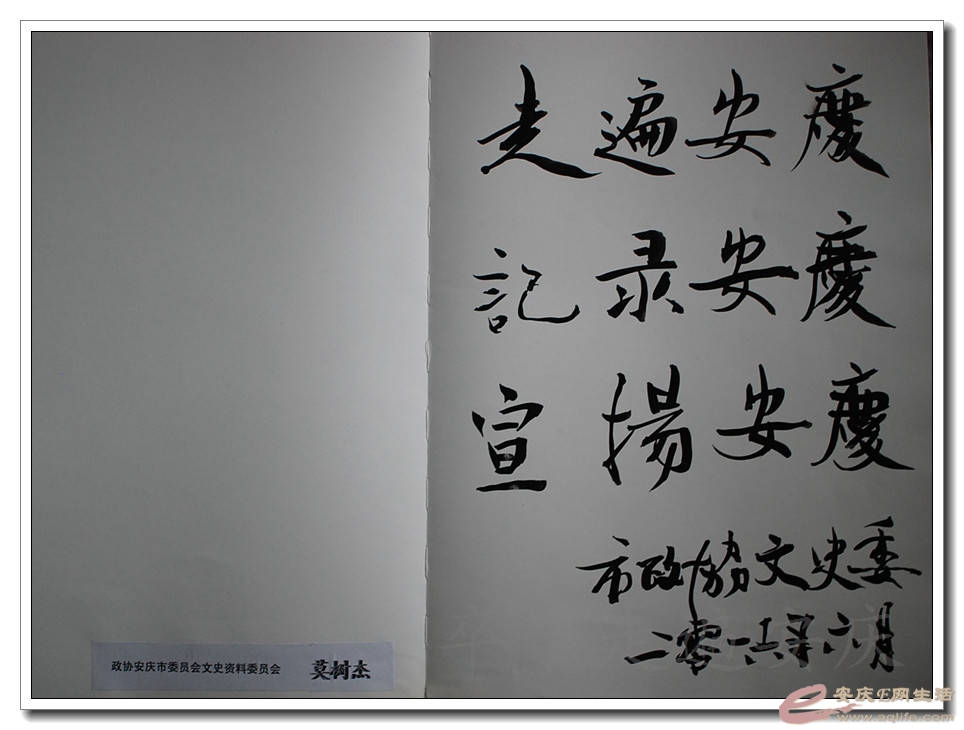 走遍安慶
記录安慶
宣揚安慶
市政協文史委
二零一六年六月
政协安庆市委员会文史资料委员会 莫树杰
安庆E网生活
www.aqlife.com